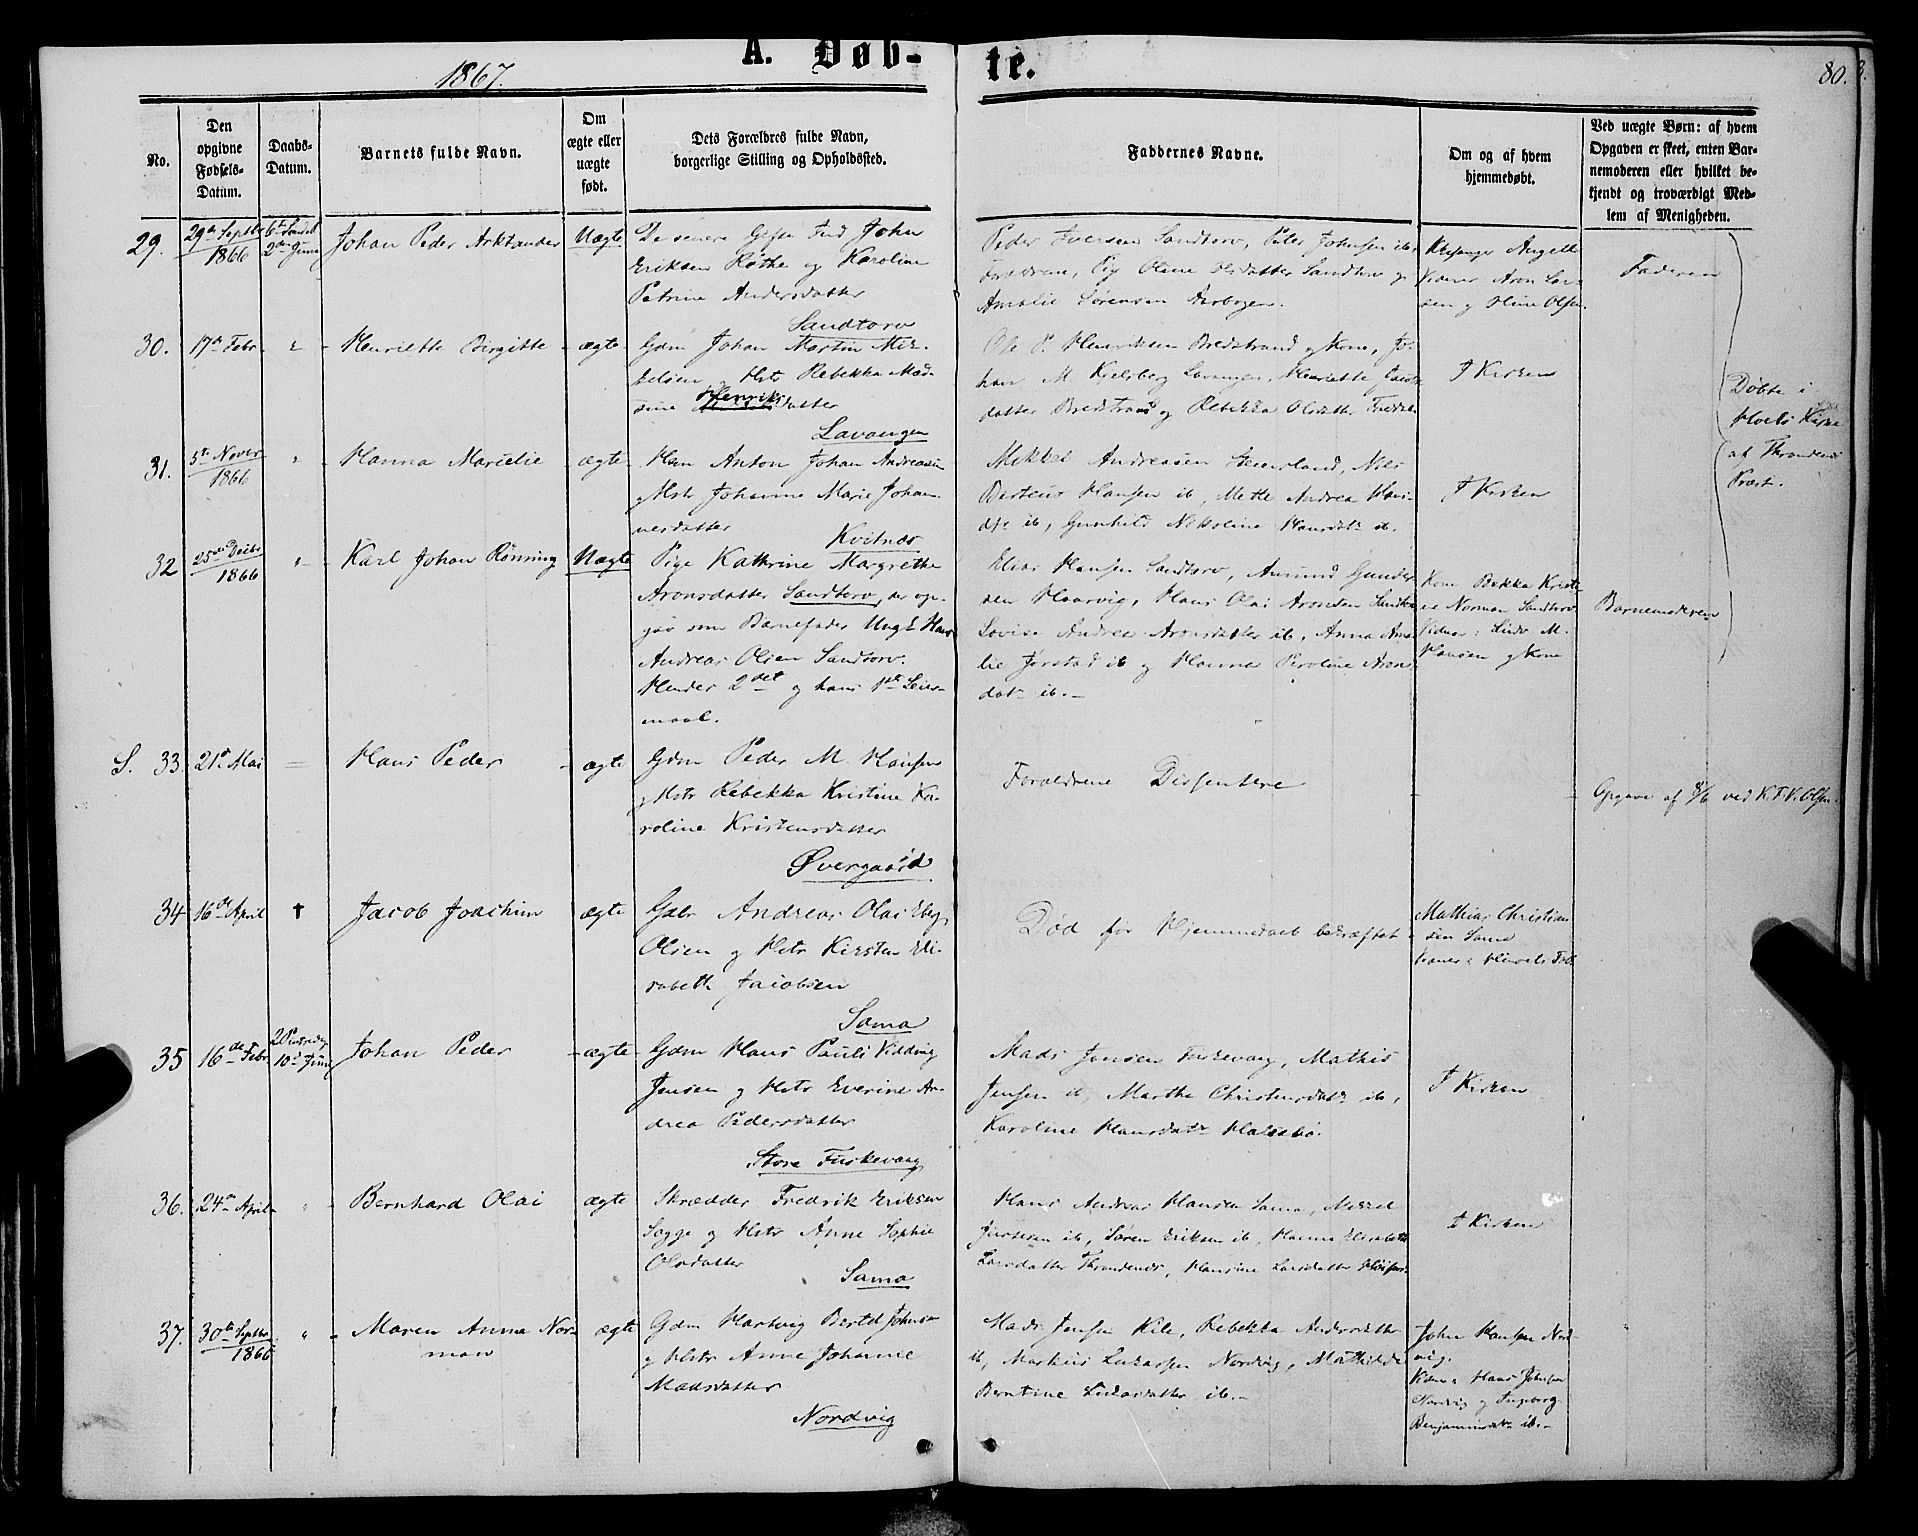 1867.
A. Døb-
te.
80.
No.
Den opgivne Fødsels-Datum.
Daabs-Datum.
Barnets fulde Navn.
Om ægte eller uægte født.
Dets Forældres fulde Navn, borgerlige Stilling og Opholdssted.
Faddernes Navne.
Om og af hvem hjemmedøbt.
Ved uægte Børn: af hvem Opgaven er skeet, enten Barnemoderen eller hvilket bekjendt og troværdigt Medlem af Menigheden.
29.
29de Septbr 1866
2den Juni
Johan Peder Arktander
Uægte
De senere Gifte Ind John
Eriksen Røthe og Karoline
Petrine Andersdatter
Sandtorv
Peder Iversen Sandtorv, Peter Johnsen ib,
Forældrene, Pig Oline Olsdatter Sandtorv og
Amalie Sørensen Aarbogen.
Aron Lar-
sen og Stine Olsen
Faderen
30.
17de Febr
Henriette Birgitte
ægte
Gdm Johan Martin Mik-
kelsen og Hstr Rebekka Mad-
sine Henriksdatter
Lavangen
Ole P. Henriksen Bredstrand og Kone, Jo-
han M Kjelsberg Lavangen, Henriette
datter Bredstrand og Rebekka Olsdatter
I Kirken
Døbte i
Hols Kirke
af Throndenes
Præst.
31.
5te Novbr 1866
Hanna Marielie
ægte
Hsm Anton Johan Andreassen
og Hstr Johanne Marie Johan-
nesdatter
Kvitnes
Mikkel Andreasen Steinsland, Nils
Berteus Hansen ib, Mette Andrea Hans-
dtr ib, Gunhild Nikoline Hansdatr ib.
I Kirken
32
25de Decbr 1866
Karl Johan Rönning
Uægte
Pige Kathrine Margrethe
Aronsdatter Sandtorv, der op-
gav som Barnefader Ungk Hans
Andreas Olsen Sandtorv.
Hendes 2det og hans 1ste Leier-
maal.
Elias Hansen Sandtorv, Amund Gunder-
sen Haarvig, Hans Olai Aronsen Sandtorv
Lovise Andrea Aronsdatter ib, Anna Ama-
lie Jørstad ib og Hanna Peroline Arons-
datr ib.-
Kone Bekka Kristi-
ne Norman Sandtorv
Vidner: Ludv M.
Hansen og Kone
Barnemoderen
S. 33.
21de Mai
Hans Peder
ægte
Gdm Peder M. Hansen
og Hstr Rebekka Kristine Ka-
roline Kristensdatter
Øvergaard
Forældrene Dissentere
Opgave af 8/6 ved K.F.V. Olsen.
34
16de April
†
Jacob Joachim
ægte
Gdbr Andreas Olai Eberg
Olsen og Hstr Kirsten Eli-
sabeth Jacobsen
Sama
Død før Hjemmedaab bekræftet
Mathias Christian
sen Sama
35
16de Febr
10de Juni
Johan Peder
ægte
Gdm Hans Pauli Vidding
Jensen og Hstr Everine An-
drea Pedersdatter
Store Fiskevaag
Mads Jensen Fiskevaag, Mathis
Jensen ib, Marthe Christensdatr ib,
Karoline Hansdatr Halsebø.
I Kirken
36.
24de April
Bernhard Olai
ægte
Skrædder Fredrik Eriksen
Sagge og Hstr Anne Sophie
Olsdatter
Sama
Hans Andreas Hansen Sama, Mikkel
Jensen ib, Søren Eriksen ib, Hanna Elisabeth
Larsdatter Throndenes, Hansine Larsdatter
I Kirken
37.
30te Septbr 1866
Maren Anna Nor-
man
ægte
Gdm Hartvig Bertel Johnsen
og Hstr Anne Johanne
Madsdatter
Nordvig
Mads Jensen Kile, Rebekka Andersdatter
ib, Markus Lukassen Nordvig, Mathilde
Berntine Lukasdatter ib.-
John Hansen Nord-
vig.
Vidner: Hans Johnsen
Nordvig og Ingeborg
Benjaminsdatr ib.-